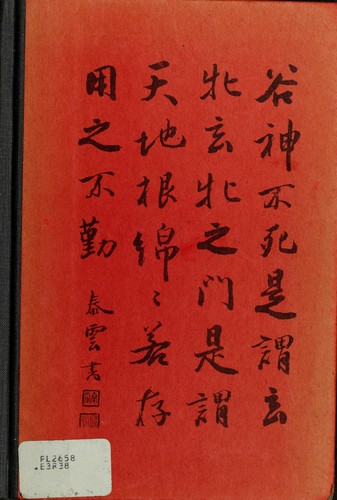 谷神不死是謂玄
牝玄牝之門是謂
天地根綿〻若存
用之不勤
泰雲書
PL2658
.E3R38